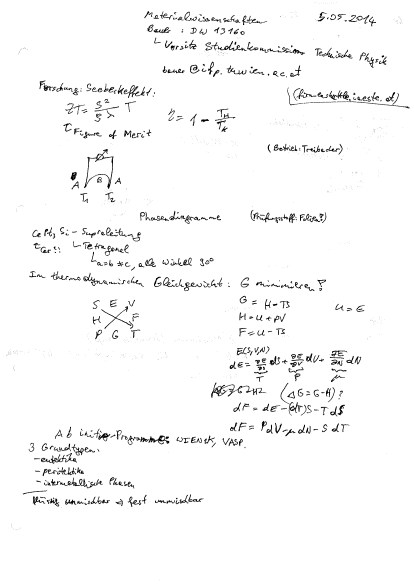 Materialwissenschaften 5.05.2014
Bauer : DW 13160
↳ Vorsitz Studienkommission Technische Physik
bauer@ifp.tuwien.ac.at
Forschung: Seebeckeffekt:
ZT = S²/ρλ T
η = 1 - T_H/T_K
↑ Figure of Merit
(Betrieb: Treibacher)
A B A
T₁ T₂
Phasendiagramme (Prüfungsstoff: Folien?)
CePt₃Si - Supraleitung
↑ Cer!! ↳ Tetragonal
↳ a=b≠c, alle Winkel 90°
Im thermodynamischen Gleichgewicht: G minimieren!
S E V
H F
P G T
G = H - TS
H = U + pV
F = U - TS
U = E
E(S,V,N)
dE = ∂E/∂S dS + ∂E/∂V dV + ∂E/∂N dN
T p μ
(ΔG = G - H)?
dF = dE - (dT)S - T dS
dF = P dV - μ dN - S dT
Ab initio-Programme: WIEN2k, VASP.
3 Grundtypen:
- eutektika
- peritektika
- intermetallische Phasen
flüssig unmischbar ⇒ fest unmischbar